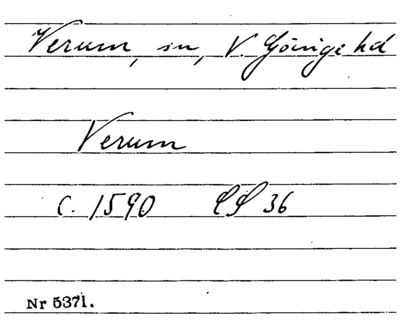 Verum, sn, V Göinge hd
Verum
c. 1590 LS 36
Nr 5371.